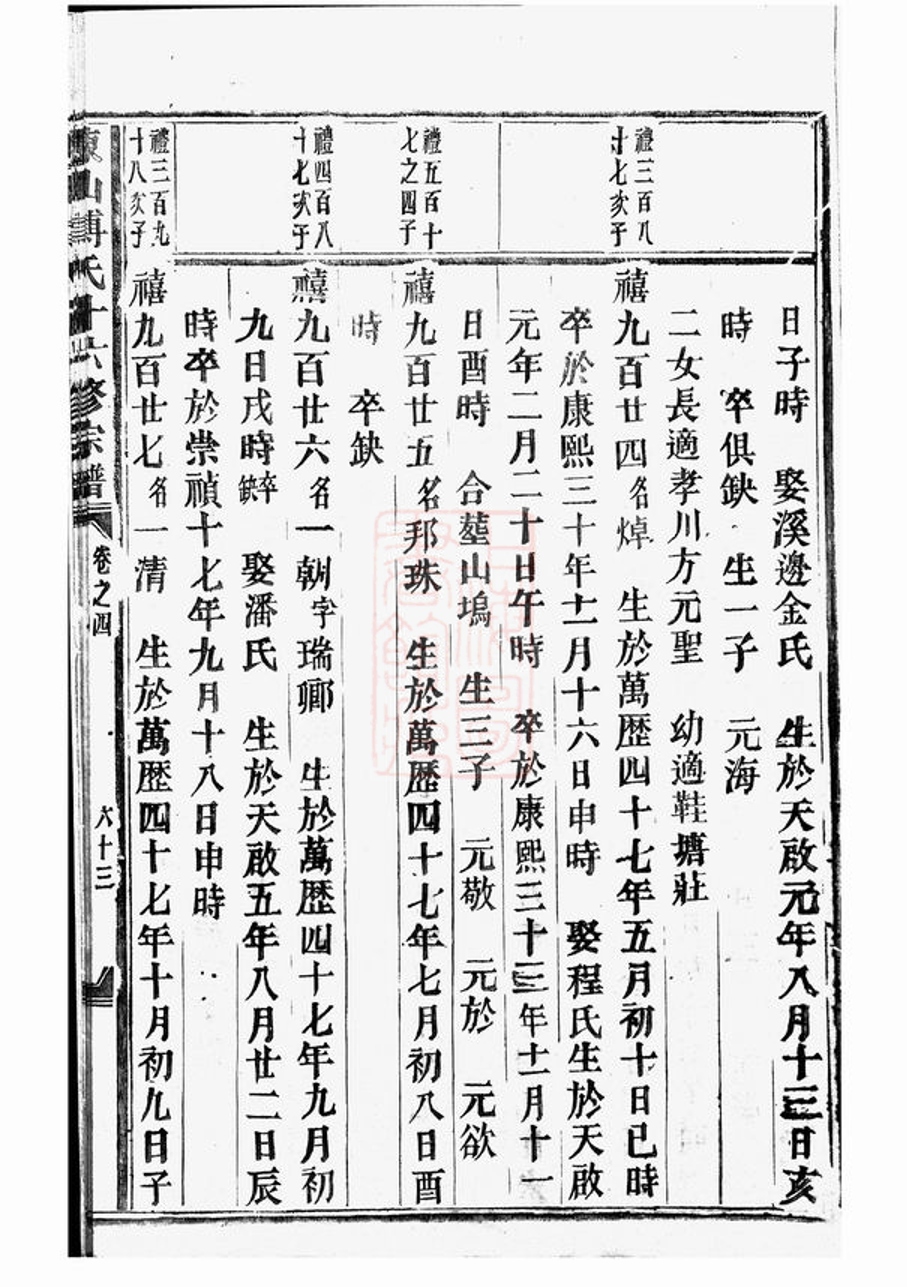 日子時　娶溪邊金氏　生於天啟元年八月十三日亥
時　卒俱缺　生一子　元海
二女長適孝川方元聖　幼適鞋塘莊
禮三百八十七次子
禧九百廿四名焯　生於萬歷四十七年五月初十日已時
卒於康熙三十年十一月十六日申時　娶程氏生於天啟
元年二月二十日午時　卒於康熙三十三年十一月十一
日酉時　合塟山塢　生三子　元敬　元於　元欲
禮五百十七之四子
禧九百廿五名邦珠　生於萬歷四十七年七月初八日酉
時　卒缺
禮四百八十七次子
禧九百廿六名一朝字瑞鄉　生於萬歷四十七年九月初
九日戌時卒缺　娶潘氏　生於天啟五年八月廿二日辰
時卒於崇禎十七年九月十八日申時
禮三百九十八次子
禧九百廿七名一清　生於萬歷四十七年十月初九日子
東山傅氏十六修宗譜　卷之四　六十三